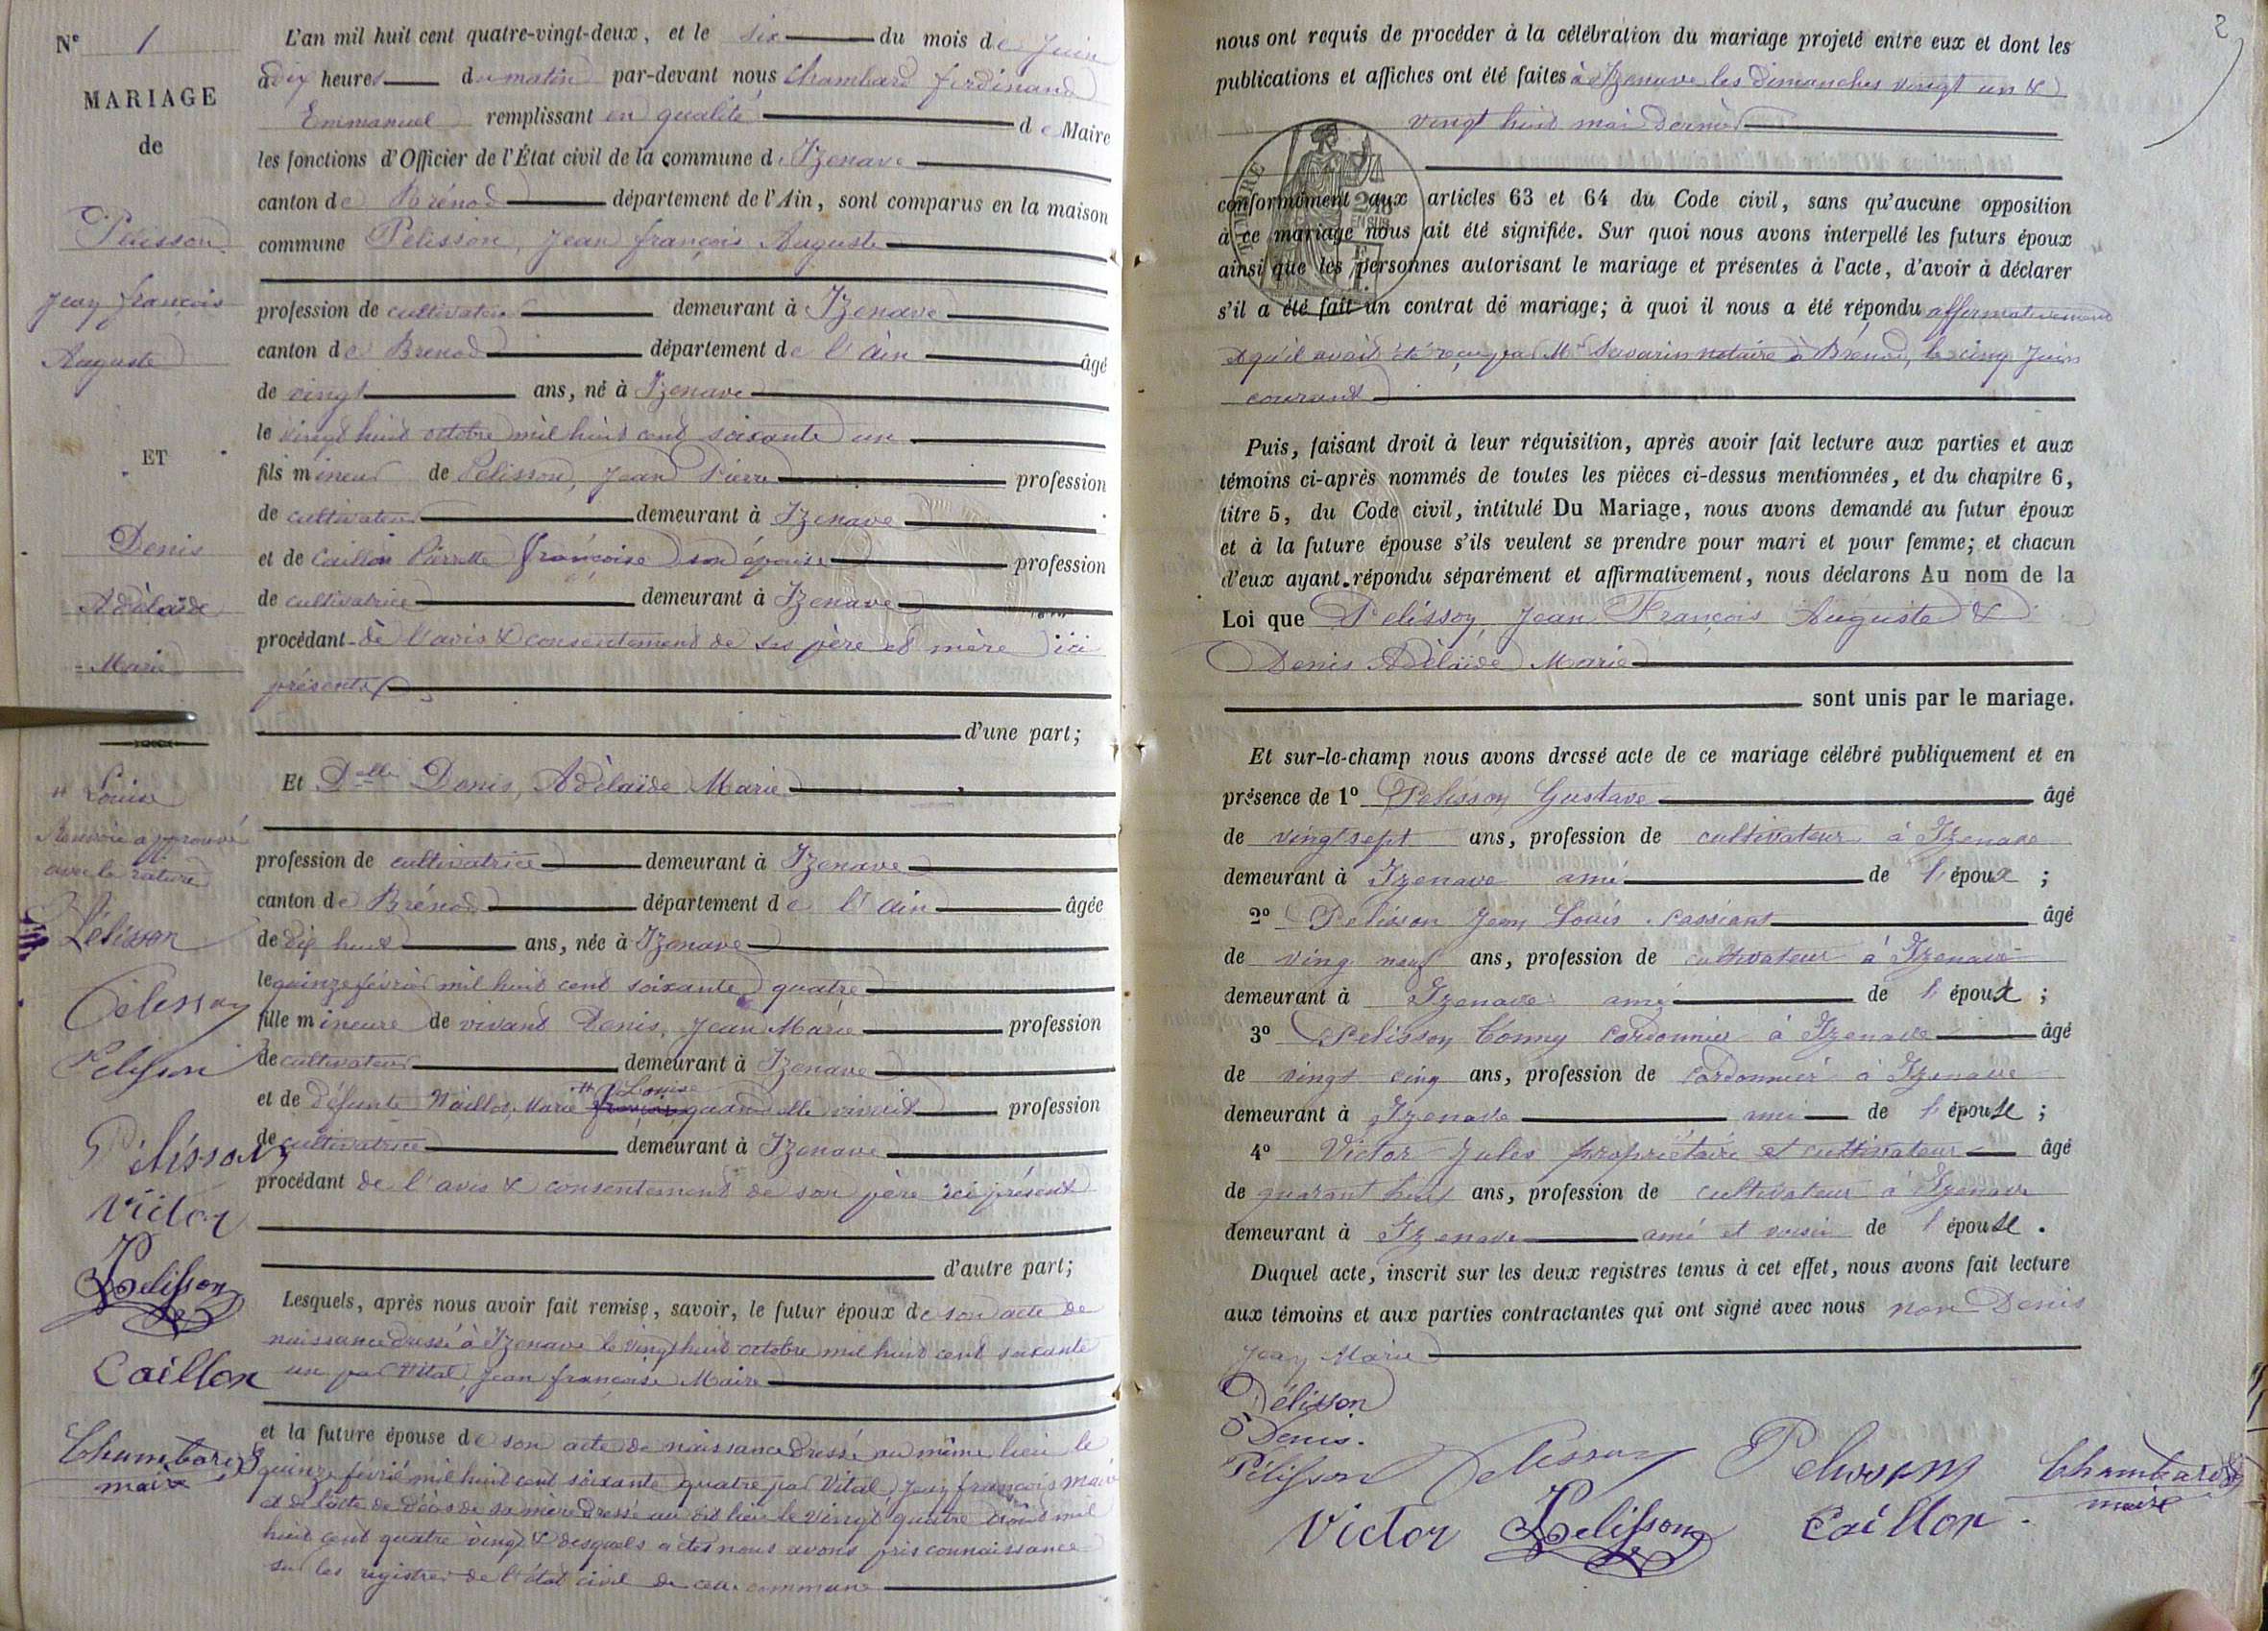 N° 1
MARIAGE
de
Pelisson
Jean françois
Auguste
ET
Denis
Adèlaïde
Marie
# Louise
Renvoi approuvé
avec la rature
Pélisson
Pelisson
Pelisson
Pélisson
Victor
Pelisson
Caillon
Chambard
maire
L'an mil huit cent quatre-vingt-deux, et le six du mois de Juin
à dix heures du matin par-devant nous Chambard ferdinand
Emmanuel remplissant en qualité de Maire
les fonctions d'Officier de l'État civil de la commune d'Izenave
canton de Brénod département de l'Ain, sont comparus en la maison
commune Pelisson, Jean françois Auguste
profession de cultivateur demeurant à Izenave
canton de Brenod département de l'Ain âgé
de vingt ans, né à Izenave
le vingt huit octobre mil huit cent soixante un
fils mineur de Pelisson, Jean Pierre profession
de cultivateur demeurant à Izenave
et de Caillon Pierrette françoise son épouse profession
de cultivatrice demeurant à Izenave
procédant de l'avis & consentement de ses père et mère ici
présents
d'une part;
Et Delle Denis, Adèlaïde Marie
profession de cultivatrice demeurant à Izenave
canton de Brénod département de l'Ain âgée
de dix huit ans, née à Izenave
le quinze février mil huit cent soixante quatre
fille mineure de vivant Denis, Jean Marie profession
de cultivateur demeurant à Izenave
et de défunte Maillot, Marie # Louise quand elle vivait profession
de cultivatrice demeurant à Izenave
procédant de l'avis & consentement de son père ici présent
d'autre part;
Lesquels, après nous avoir fait remise, savoir, le futur époux de son acte de
naissance dressé à Izenave le vingt huit octobre mil huit cent soixante
un par Vital, Jean françois Maire
et la future épouse de son acte de naissance dressé au même lieu le
quinze février mil huit cent soixante quatre par Vital, Jean françois Maire
et de l'acte de décès de sa mère dressé au dit lieu le vingt quatre août mil
huit cent quatre vingt & desquels actes nous avons pris connaissance
sur les registres de l'état civil de cette commune
2
nous ont requis de procéder à la célébration du mariage projeté entre eux et dont les
publications et affiches ont été faites à Izenave les dimanches vingt un &
vingt huit mai dernier
conformément aux articles 63 et 64 du Code civil, sans qu'aucune opposition
à ce mariage nous ait été signifiée. Sur quoi nous avons interpellé les futurs époux
ainsi que les personnes autorisant le mariage et présentes à l'acte, d'avoir à déclarer
s'il a été fait un contrat de mariage; à quoi il nous a été répondu affirmativement
et qu'il avait été reçu par Me Savarin notaire à Brénod, le cinq Juin
courant
Puis, faisant droit à leur réquisition, après avoir fait lecture aux parties et aux
témoins ci-après nommés de toutes les pièces ci-dessus mentionnées, et du chapitre 6,
titre 5, du Code civil, intitulé Du Mariage, nous avons demandé au futur époux
et à la future épouse s'ils veulent se prendre pour mari et pour femme; et chacun
d'eux ayant répondu séparément et affirmativement, nous déclarons Au nom de la
Loi que Pelisson, Jean François Auguste &
Denis Adèlaïde Marie
sont unis par le mariage.
Et sur-le-champ nous avons dressé acte de ce mariage célébré publiquement et en
présence de 1° Pelisson Gustave âgé
de vingt sept ans, profession de cultivateur à Izenave
demeurant à Izenave ami de l'époux ;
2° Pelisson Jean Louis âgé
de ving neuf ans, profession de cultivateur à Izenave
demeurant à Izenave ami de l'époux ;
3° Pelisson Tonny Cordonnier à Izenave âgé
de vingt cinq ans, profession de cordonnier à Izenave
demeurant à Izenave ami de l'épouse ;
4° Victor Jules propriétaire et cultivateur âgé
de quarant huit ans, profession de cultivateur à Izenave
demeurant à Izenave ami et voisin de l'épouse .
Duquel acte, inscrit sur les deux registres tenus à cet effet, nous avons fait lecture
aux témoins et aux parties contractantes qui ont signé avec nous non Denis
Jean Marie
Pélisson
Denis.
Pélisson Pelisson Pelisson Chambard
maire
Victor Pelisson Caillon